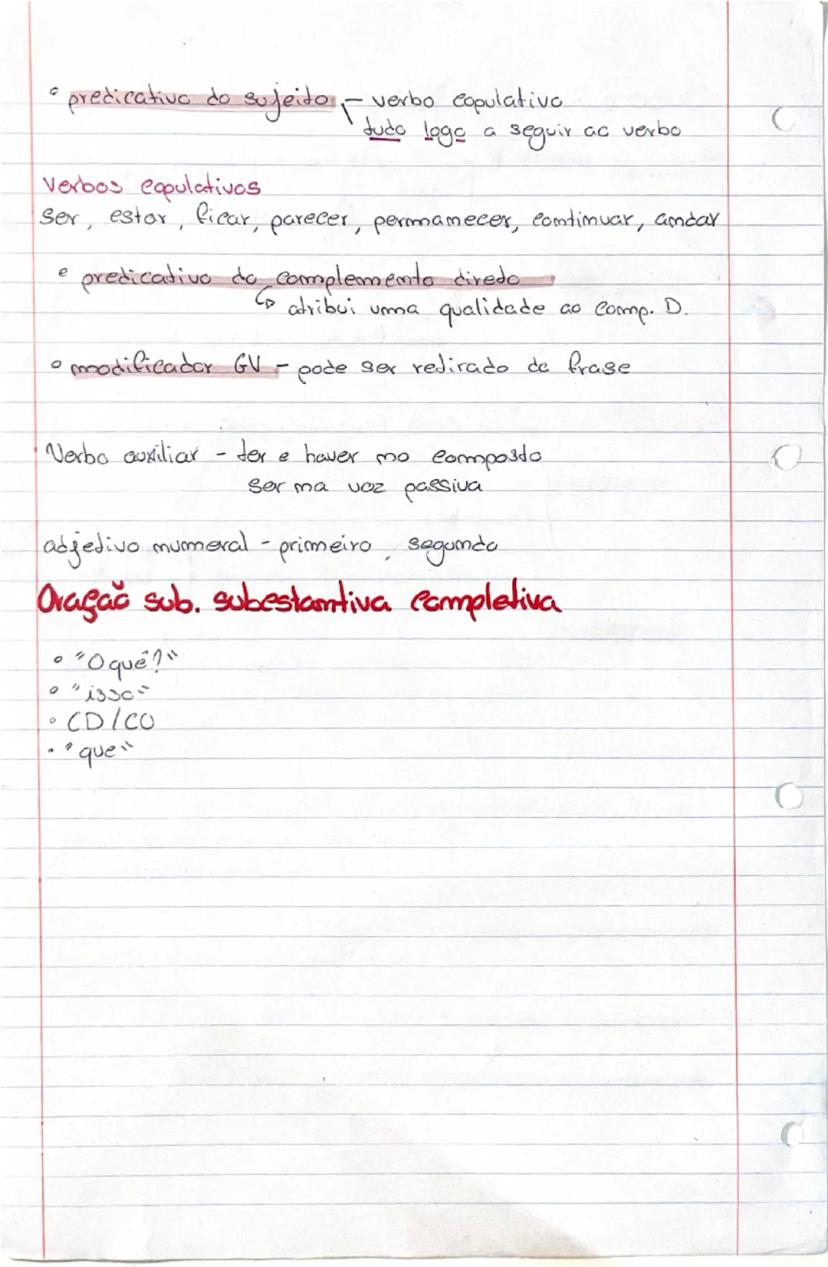 • predicativo do sujeito - verbo copulativo
tudo logo a seguir ao verbo
Verbos copulativos
ser, estar, ficar, parecer, permanecer, continuar, andar
• predicativo do complemento direto
↳ atribui uma qualidade ao comp. D.
• modificador GV - pode ser retirado da frase
Verbo auxiliar - ter e haver no composto
ser na voz passiva
adjetivo numeral - primeiro, segundo
Oração sub. subestantiva completiva
• "O quê?"
• "isso"
• CD/CO
• "que"